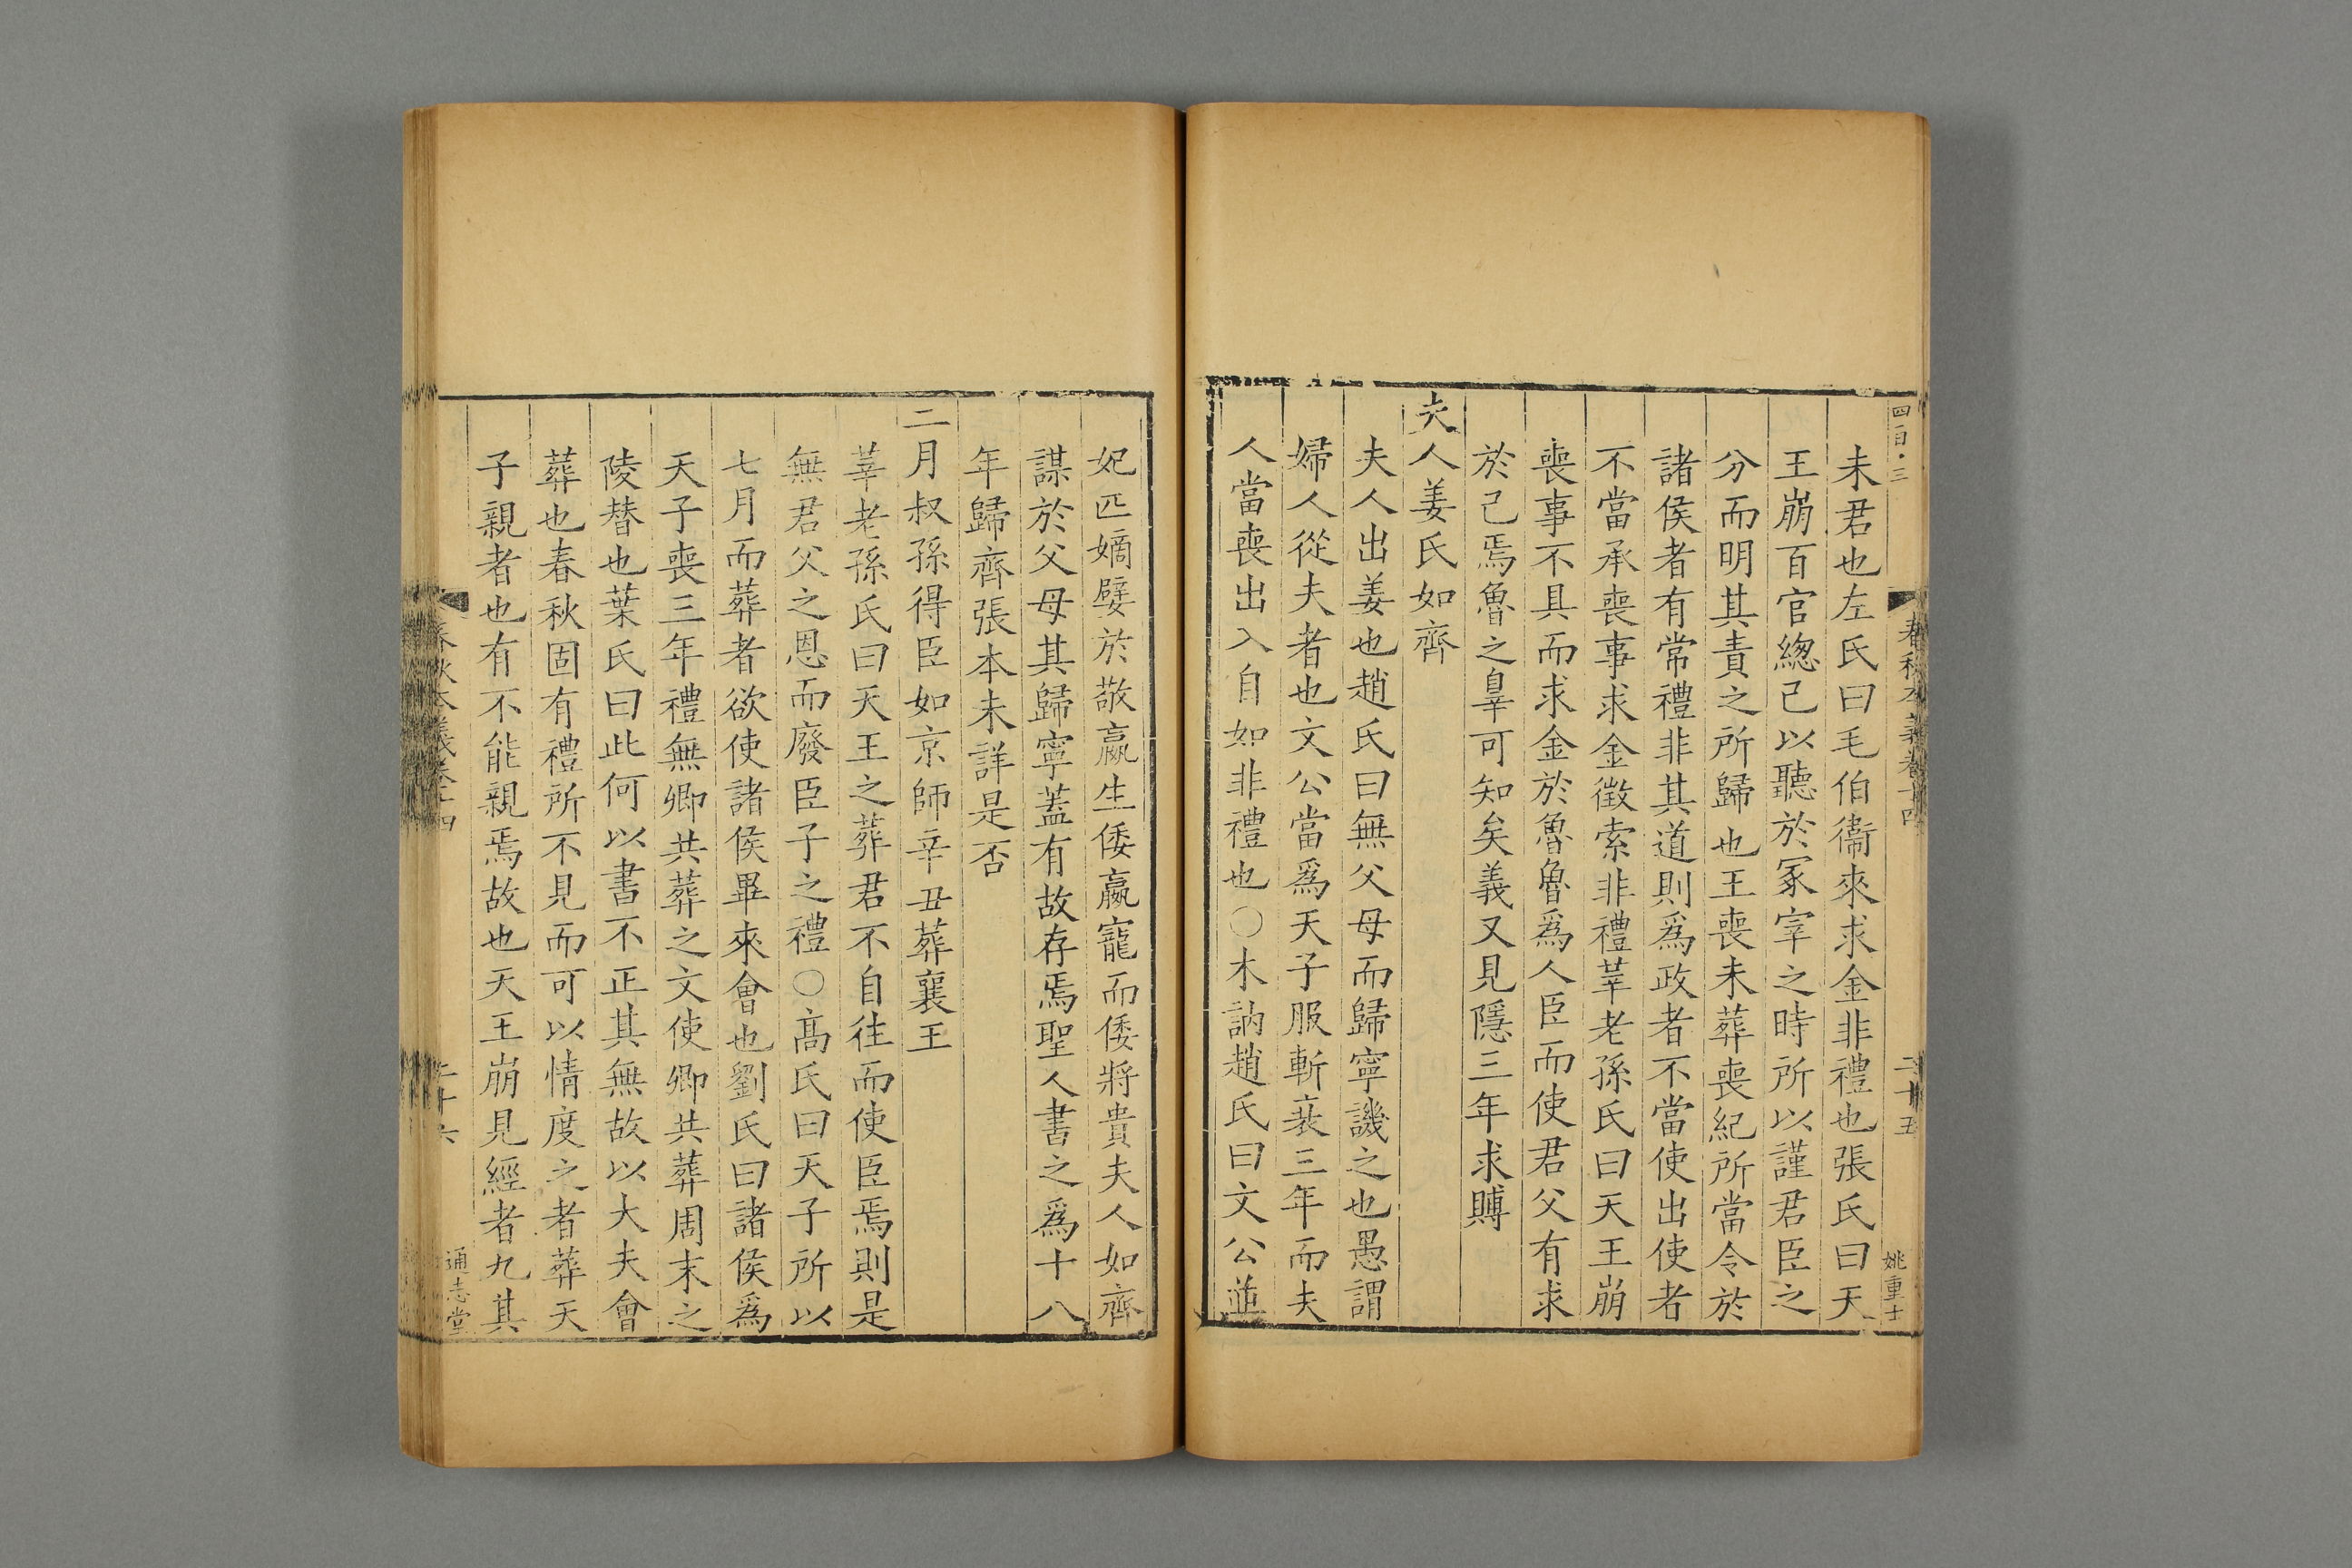 四百·三
春秋本義卷十四
二十五
姚重士
未君也左氏曰毛伯衞來求金非禮也張氏曰天
王崩百官緫己以聽於冢宰之時所以謹君臣之
分而明其責之所歸也王喪未葬喪紀所當令於
諸侯者有常禮非其道則爲政者不當使出使者
不當承喪事求金徵索非禮莘老孫氏曰天王崩
喪事不具而求金於魯魯爲人臣而使君父有求
於己焉魯之辠可知矣義又見隱三年求賻
夫人姜氏如齊
夫人出姜也趙氏曰無父母而歸寧譏之也愚謂
婦人從夫者也文公當爲天子服斬衰三年而夫
人當喪出入自如非禮也○木訥趙氏曰文公並
妃匹嫡嬖於敬嬴生倭嬴寵而倭將貴夫人如齊
謀於父母其歸寧蓋有故存焉聖人書之爲十八
年歸齊張本未詳是否
二月叔孫得臣如京師辛丑葬襄王
莘老孫氏曰天王之葬君不自往而使臣焉則是
無君父之恩而廢臣子之禮○髙氏曰天子所以
七月而葬者欲使諸侯畢來會也劉氏曰諸侯爲
天子喪三年禮無卿共葬之文使卿共葬周末之
陵替也葉氏曰此何以書不正其無故以大夫會
葬也春秋固有禮所不見而可以情度之者葬天
子親者也有不能親焉故也天王崩見經者九其
春秋本義卷十四
二十六
通志堂